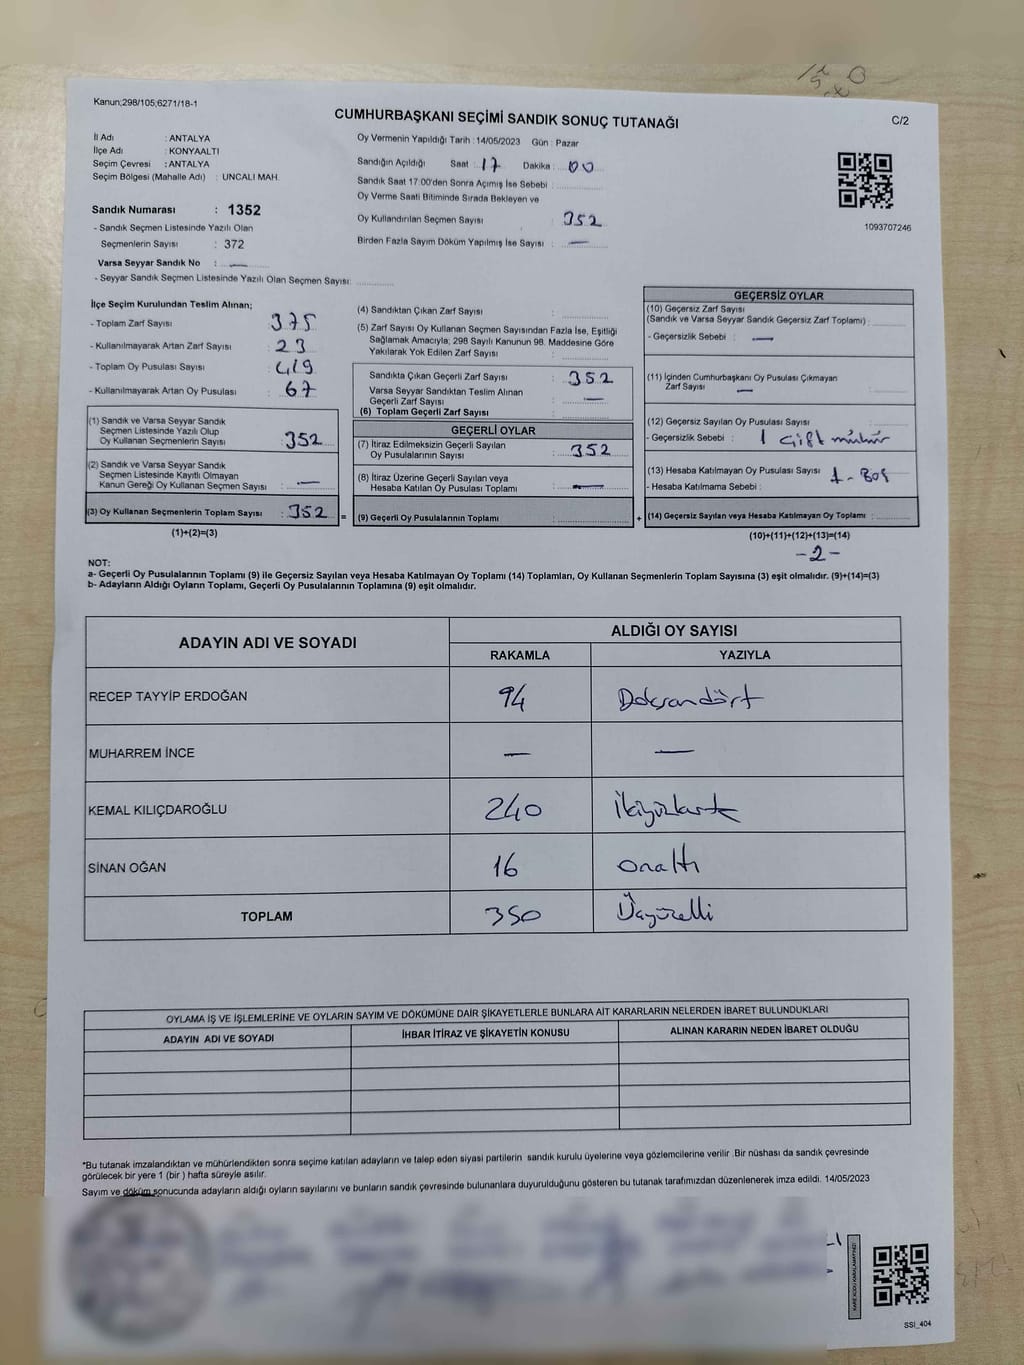 Kanun;298/105;6271/18-1
CUMHURBAŞKANI SEÇİMİ SANDIK SONUÇ TUTANAĞI
C/2
İl Adı : ANTALYA
İlçe Adı : KONYAALTI
Seçim Çevresi : ANTALYA
Seçim Bölgesi (Mahalle Adı) : UNCALI MAH.
Sandık Numarası : 1352
- Sandık Seçmen Listesinde Yazılı Olan
Seçmenlerin Sayısı : 372
Varsa Seyyar Sandık No : —
- Seyyar Sandık Seçmen Listesinde Yazılı Olan Seçmen Sayısı:
Oy Vermenin Yapıldığı Tarih : 14/05/2023 Gün : Pazar
Sandığın Açıldığı Saat : 17 Dakika : 00
Sandık Saat 17.00'den Sonra Açımış İse Sebebi :
Oy Verme Saati Bitiminde Sırada Bekleyen ve
Oy Kullandırılan Seçmen Sayısı : 352
Birden Fazla Sayım Döküm Yapılmış İse Sayısı : —
1093707246
İlçe Seçim Kurulundan Teslim Alınan;
- Toplam Zarf Sayısı : 375
- Kullanılmayarak Artan Zarf Sayısı : 23
- Toplam Oy Pusulası Sayısı : 419
- Kullanılmayarak Artan Oy Pusulası : 67
(1) Sandık ve Varsa Seyyar Sandık
Seçmen Listesinde Yazılı Olup
Oy Kullanan Seçmenlerin Sayısı : 352
(2) Sandık ve Varsa Seyyar Sandık
Seçmen Listesinde Kayıtlı Olmayan
Kanun Gereği Oy Kullanan Seçmen Sayısı : —
(3) Oy Kullanan Seçmenlerin Toplam Sayısı : 352 =
(1)+(2)=(3)
(4) Sandıktan Çıkan Zarf Sayısı :
(5) Zarf Sayısı Oy Kullanan Seçmen Sayısından Fazla İse, Eşitliği
Sağlamak Amacıyla; 298 Sayılı Kanunun 98. Maddesine Göre
Yakılarak Yok Edilen Zarf Sayısı :
Sandıkta Çıkan Geçerli Zarf Sayısı : 352
Varsa Seyyar Sandıktan Teslim Alınan
Geçerli Zarf Sayısı : —
(6) Toplam Geçerli Zarf Sayısı :
GEÇERLİ OYLAR
(7) İtiraz Edilmeksizin Geçerli Sayılan
Oy Pusulalarının Sayısı : 352
(8) İtiraz Üzerine Geçerli Sayılan veya
Hesaba Katılan Oy Pusulası Toplamı : —
(9) Geçerli Oy Pusulalarının Toplamı : +
GEÇERSİZ OYLAR
(10) Geçersiz Zarf Sayısı
(Sandık ve Varsa Seyyar Sandık Geçersiz Zarf Toplamı) :
- Geçersizlik Sebebi : —
(11) İçinden Cumhurbaşkanı Oy Pusulası Çıkmayan
Zarf Sayısı —
(12) Geçersiz Sayılan Oy Pusulası Sayısı :
- Geçersizlik Sebebi : 1 Çift mühür
(13) Hesaba Katılmayan Oy Pusulası Sayısı : 1 - Boş
- Hesaba Katılmama Sebebi :
(14) Geçersiz Sayılan veya Hesaba Katılmayan Oy Toplamı :
(10)+(11)+(12)+(13)=(14)
- 2 -
NOT:
a- Geçerli Oy Pusulalarının Toplamı (9) ile Geçersiz Sayılan veya Hesaba Katılmayan Oy Toplamı (14) Toplamları, Oy Kullanan Seçmenlerin Toplam Sayısına (3) eşit olmalıdır. (9)+(14)=(3)
b- Adayların Aldığı Oyların Toplamı, Geçerli Oy Pusulalarının Toplamına (9) eşit olmalıdır.
ADAYIN ADI VE SOYADI
ALDIĞI OY SAYISI
RAKAMLA YAZIYLA
RECEP TAYYİP ERDOĞAN 94 Doksandört
MUHARREM İNCE — —
KEMAL KILIÇDAROĞLU 240 İkiyüzkırk
SİNAN OĞAN 16 onaltı
TOPLAM 350 Üçyüzelli
OYLAMA İŞ VE İŞLEMLERİNE VE OYLARIN SAYIM VE DÖKÜMÜNE DAİR ŞİKAYETLERLE BUNLARA AİT KARARLARIN NELERDEN İBARET BULUNDUKLARI
ADAYIN ADI VE SOYADI İHBAR İTİRAZ VE ŞİKAYETİN KONUSU ALINAN KARARIN NEDEN İBARET OLDUĞU
*Bu tutanak imzalandıktan ve mühürlendikten sonra seçime katılan adayların ve talep eden siyasi partilerin sandık kurulu üyelerine veya gözlemcilerine verilir .Bir nüshası da sandık çevresinde
görülecek bir yere 1 (bir ) hafta süreyle asılır.
Sayım ve döküm sonucunda adayların aldığı oyların sayılarını ve bunların sandık çevresinde bulunanlara duyurulduğunu gösteren bu tutanak tarafımızdan düzenlenerek imza edildi. 14/05/2023
SSI_404